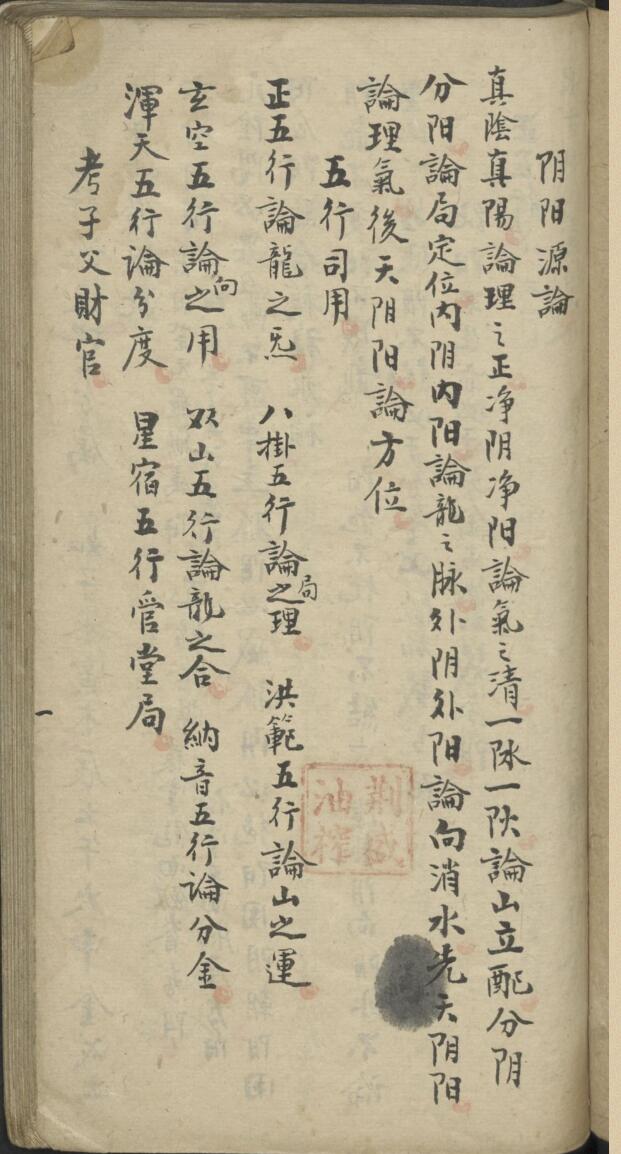 阴阳源論
真陰真陽論理之正净阴净阳論氣之清一阦一阥論山立配分阴
分阳論局定位内阴内阳論龍之脉外阴外阳論向消水先天阴阳
論理氣後天阴阳論方位
五行司用
正五行論龍之炁 八掛五行論局之理 洪範五行論山之運
玄空五行論向之用 双山五行論龍之合 納音五行論分金
渾天五行論分度 星宿五行管堂局
考子父財官